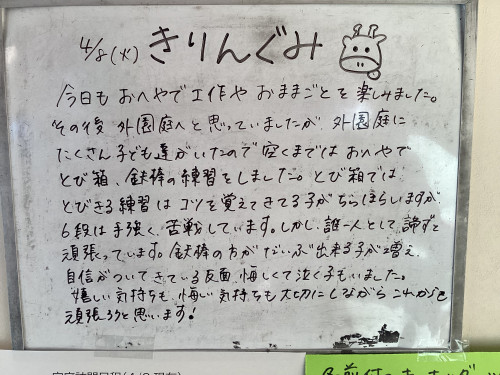 4/8(火) きりんぐみ
今日も おへやで工作や おままごとを 楽しみました。
その後 外園庭へと思っていましたが、外園庭に
たくさん子ども達がいたので 空くまでは おへやで
とび箱、鉄棒の練習をしました。とび箱では
とびきる練習は コツを覚えてきてる子がちらほらいますが、
6段は手強く、苦戦しています。しかし、誰一人として、諦ずと
頑張っています。鉄棒の方がだいぶ出来る子が増え、
自信がついてきている反面、悔しくて泣く子もいました。
嬉しい気持ちも、悔しい気持ちも大切にしながら これからも
頑張ろうと思います!